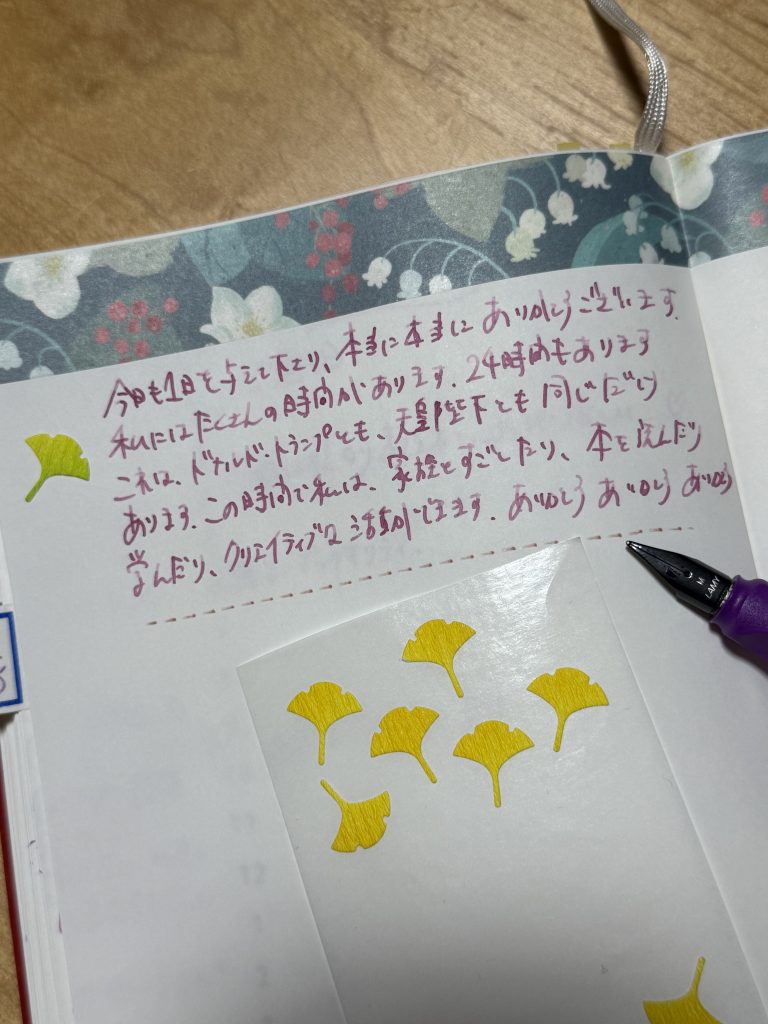 今日も1日を与えて下さり、本当に本当にありがとうございます.
私にはたくさんの時間があります. 24時間もあります
これは、ドナルド・トランプとも、天皇陛下とも同じだけ
あります. この時間で私は、家族とすごしたり、本を読んだり
学んだり、クリエイティブな活動ができます. ありがとう ありがとう ありがとう
M
LAMY